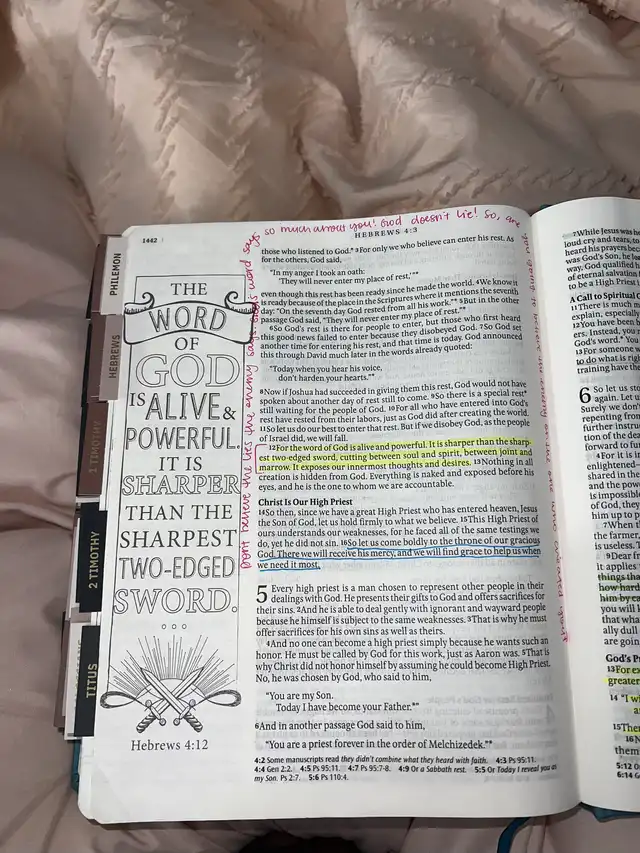 1442
HEBREWS 4:3
so much about you! God doesn't lie! So, are
Don't believe the lies the enemy says. God's word says
PHILEMON
HEBREWS
1 TIMOTHY
2 TIMOTHY
TITUS
THE
WORD
OF
GOD
IS ALIVE &
POWERFUL.
IT IS
SHARPER
THAN THE
SHARPEST
TWO-EDGED
SWORD.
Hebrews 4:12
those who listened to God.* 3For only we who believe can enter his rest. As
for the others, God said,
"In my anger I took an oath:
'They will never enter my place of rest,'"*
even though this rest has been ready since he made the world. 4We know it
is ready because of the place in the Scriptures where it mentions the seventh
day: "On the seventh day God rested from all his work."* 5But in the other
passage God said, "They will never enter my place of rest."*
6So God's rest is there for people to enter, but those who first heard
this good news failed to enter because they disobeyed God. 7So God set
another time for entering his rest, and that time is today. God announced
this through David much later in the words already quoted:
"Today when you hear his voice,
don't harden your hearts."*
8Now if Joshua had succeeded in giving them this rest, God would not have
spoken about another day of rest still to come. 9So there is a special rest*
still waiting for the people of God. 10For all who have entered into God's
rest have rested from their labors, just as God did after creating the world.
11So let us do our best to enter that rest. But if we disobey God, as the people
of Israel did, we will fall.
12For the word of God is alive and powerful. It is sharper than the sharp-
est two-edged sword, cutting between soul and spirit, between joint and
marrow. It exposes our innermost thoughts and desires. 13Nothing in all
creation is hidden from God. Everything is naked and exposed before his
eyes, and he is the one to whom we are accountable.
Christ Is Our High Priest
14So then, since we have a great High Priest who has entered heaven, Jesus
the Son of God, let us hold firmly to what we believe. 15This High Priest of
ours understands our weaknesses, for he faced all of the same testings we
do, yet he did not sin. 16So let us come boldly to the throne of our gracious
God. There we will receive his mercy, and we will find grace to help us when
we need it most.
5 Every high priest is a man chosen to represent other people in their
dealings with God. He presents their gifts to God and offers sacrifices for
their sins. 2And he is able to deal gently with ignorant and wayward people
because he himself is subject to the same weaknesses. 3That is why he must
offer sacrifices for his own sins as well as theirs.
4And no one can become a high priest simply because he wants such an
honor. He must be called by God for this work, just as Aaron was. 5That is
why Christ did not honor himself by assuming he could become High Priest.
No, he was chosen by God, who said to him,
"You are my Son.
Today I have become your Father.*"
6And in another passage God said to him,
"You are a priest forever in the order of Melchizedek."*
4:2 Some manuscripts read they didn't combine what they heard with faith. 4:3 Ps 95:11.
4:4 Gen 2:2. 4:5 Ps 95:11. 4:7 Ps 95:7-8. 4:9 Or a Sabbath rest. 5:5 Or Today I reveal you as
my Son. Ps 2:7. 5:6 Ps 110:4.
7While Jesus was he
loud cry and tears, to
heard his prayers beca
was God's Son, he le
way, God qualified h
of eternal salvation f
to be a High Priest i
A Call to Spiritual
11There is much m
explain, especially
12You have been
ers. Instead, you n
God's word.* You
13For someone w
to do what is righ
training have the
6 So let us sto
again. Let
Surely we do
repenting from
further instruc
tion of the d
forward to fu
4For it is i
enlightened—
shared in the
and the pow
is impossibl
of God, they
him up to p
7When t
the farmer
is useless. T
9Dear fr
it really
things tha
how hard
him by ca
you will
that wha
ally dull
are goin
God's P
13For ex
greater
14 "I wi
15Then
16N
them
5:12 O
6:14 G